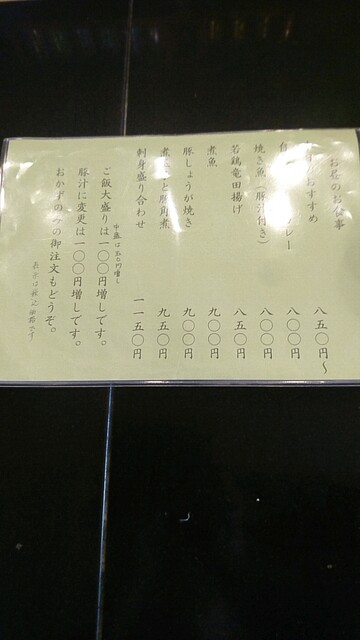 お昼のお食事
おすすめ 八五〇円〜
レー 八〇〇円
焼き魚(豚汁付き) 八〇〇円
若鶏竜田揚げ 八五〇円
煮魚 九〇〇円
豚しょうが焼き 九〇〇円
と豚角煮 九五〇円
刺身盛り合わせ 一一五〇円
中盛は五〇円増し
ご飯大盛りは一〇〇円増しです。
豚汁に変更は一〇〇円増しです。
おかずのみの御注文もどうぞ。
表示は税込価格です